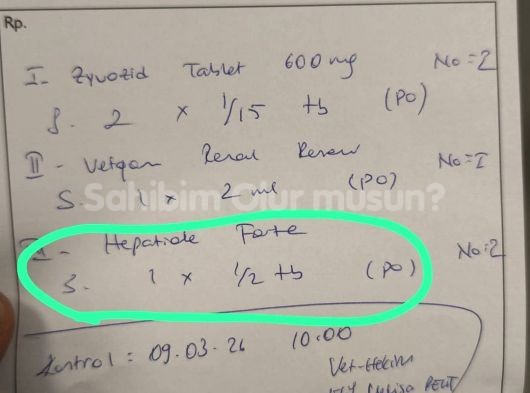 Rp.
I- Zyvozid Tablet 600 mg No=2
S. 2 x 1/15 tb (PO)
II- Vetgam Renal Renew No=I
S. 1 x 2 ml (PO)
Sahibim Olur musun?
III- Hepatiale Forte No:2
S. 1 x 1/2 tb (PO)
Kontrol: 09.03.26 10:00
Vet-Hekim